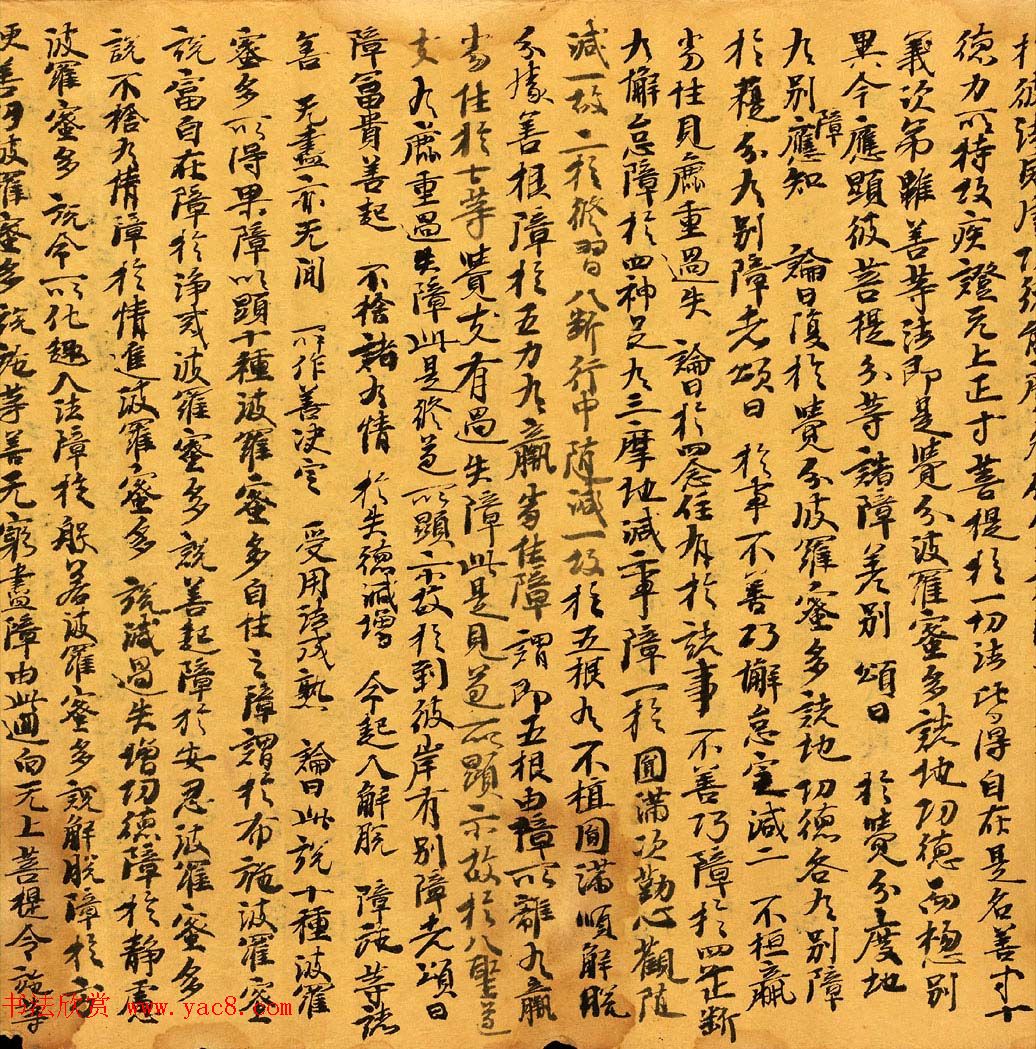 德力所持故疾證无上正等菩提於一切法皆得自在是名善等十
義次第雖善等法即是覺分波羅蜜多諸地功德而總別
異今應顯彼菩提分等諸障差別 頌曰 於覺分度地
有別障應知 論曰復於覺分波羅蜜多諸地功德各有別障
於菩提分有別障者頌曰 於事不善巧懈怠定減二 不植羸
劣性見麁重過失 論曰於四念住有於諸事不善巧障於四正斷
有懈怠障於四神足有三摩地減二事障一於圓滿欲勤心觀隨
減一故二於修習八斷行中隨減一故於五根有不植圓滿順解脫
分勝善根障於五力有羸劣性障謂即五根由障所雜有羸
劣性於七等覺支有過失障此是見道所顯示故於八聖道
支有麁重過失障此是修道所顯示故於到彼岸有別障者頌曰
障富貴善趣 不捨諸有情 於失德減增 令趣入解脫 障施等諸
善 无盡亦无間 所作善決定 受用法成熟 論曰此說十種波羅
蜜多所得果障以顯十種波羅蜜多自性之障謂於布施波羅蜜
說富自在障於淨戒波羅蜜多說善趣障於安忍波羅蜜多
說不捨有情障於精進波羅蜜多 說減過失增功德障於靜慮
波羅蜜多 說令所化趣入法障於般若波羅蜜多說解脫障於方
便善巧波羅蜜多說施等善无窮盡障由此迴向无上菩提令施等
书法欣赏 www.yac8.com